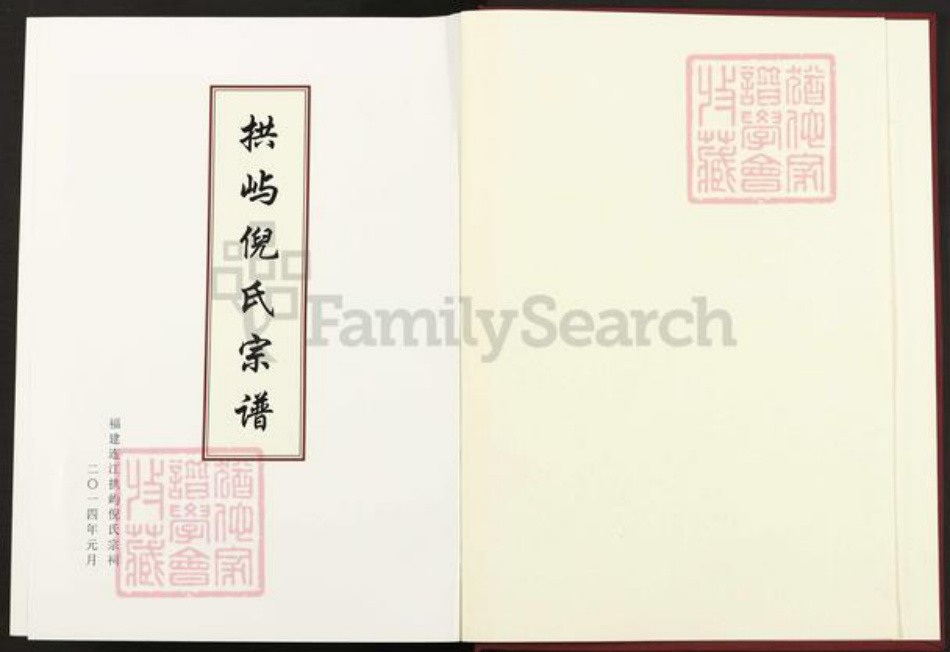 拱屿倪氏宗谱
福建连江拱屿倪氏宗祠
二〇一四年元月
FamilySearch
猶他家
譜學會
收藏
猶他家
譜學會
收藏